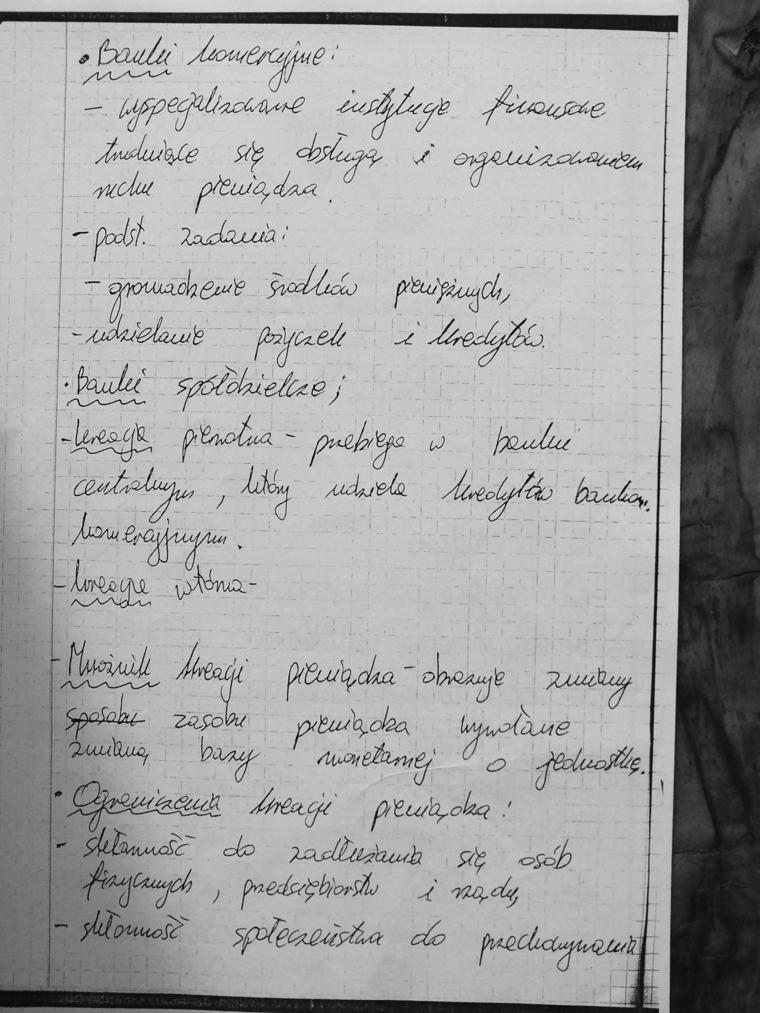 • Banki komercyjne:
- wyspecjalizowane instytucje finansowe
trudniące się obsługą i organizowaniem
ruchu pieniądza.
- podst. zadania:
- gromadzenie środków pieniężnych,
- udzielanie pożyczek i kredytów.
• Banki spółdzielcze;
- kreacja pierwotna - przebiega w banku
centralnym, który udziela kredytów bankom.
komercyjnym.
- kreacja wtórna -
- Mnożnik kreacji pieniądza - obrazuje zmiany
sposobu zasobu pieniądza wywołane
zmianą bazy monetarnej o jednostkę.
• Ograniczenia kreacji pieniądza:
- skłonność do zadłużania się osób
fizycznych, przedsiębiorstw i rządu,
- skłonność społeczeństwa do przechowywania